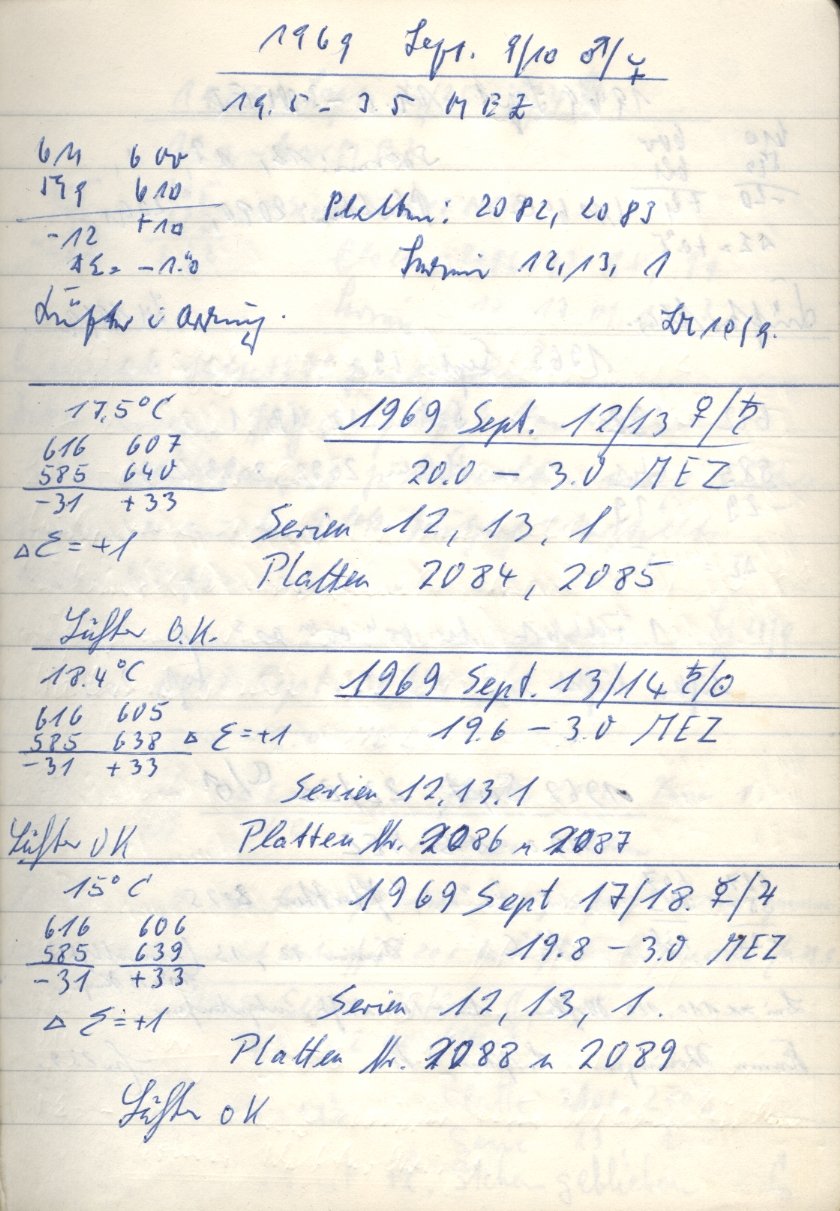 1969 Sept. 9/10 ♂/☿
19.5 – 3.5 MEZ
611 600
599 610
-12 +10
ΔΣ = -1.0
Platten: 2082, 2083
Serien 12, 13, 1
Lüfter i Ordnung.
10/9.
17,5°C
1969 Sept. 12/13 ♀/♄
616 607
585 640
-31 +33
20.0 – 3.0 MEZ
Δ Σ = +1
Serien 12, 13, 1
Platten 2084, 2085
Lüfter O.K.
18.4°C
1969 Sept. 13/14 ♄/☉
616 605
585 638 Δ Σ = +1
-31 +33
19.6 – 3.0 MEZ
Serien 12, 13, 1
Lüfter OK
Platten Nr. 2086 u 2087
15°C
1969 Sept 17/18. ☿/♃
616 606
585 639
-31 +33
19.8 – 3.0 MEZ
Δ Σ = +1
Serien 12, 13, 1.
Platten Nr. 2088 u 2089
Lüfter OK